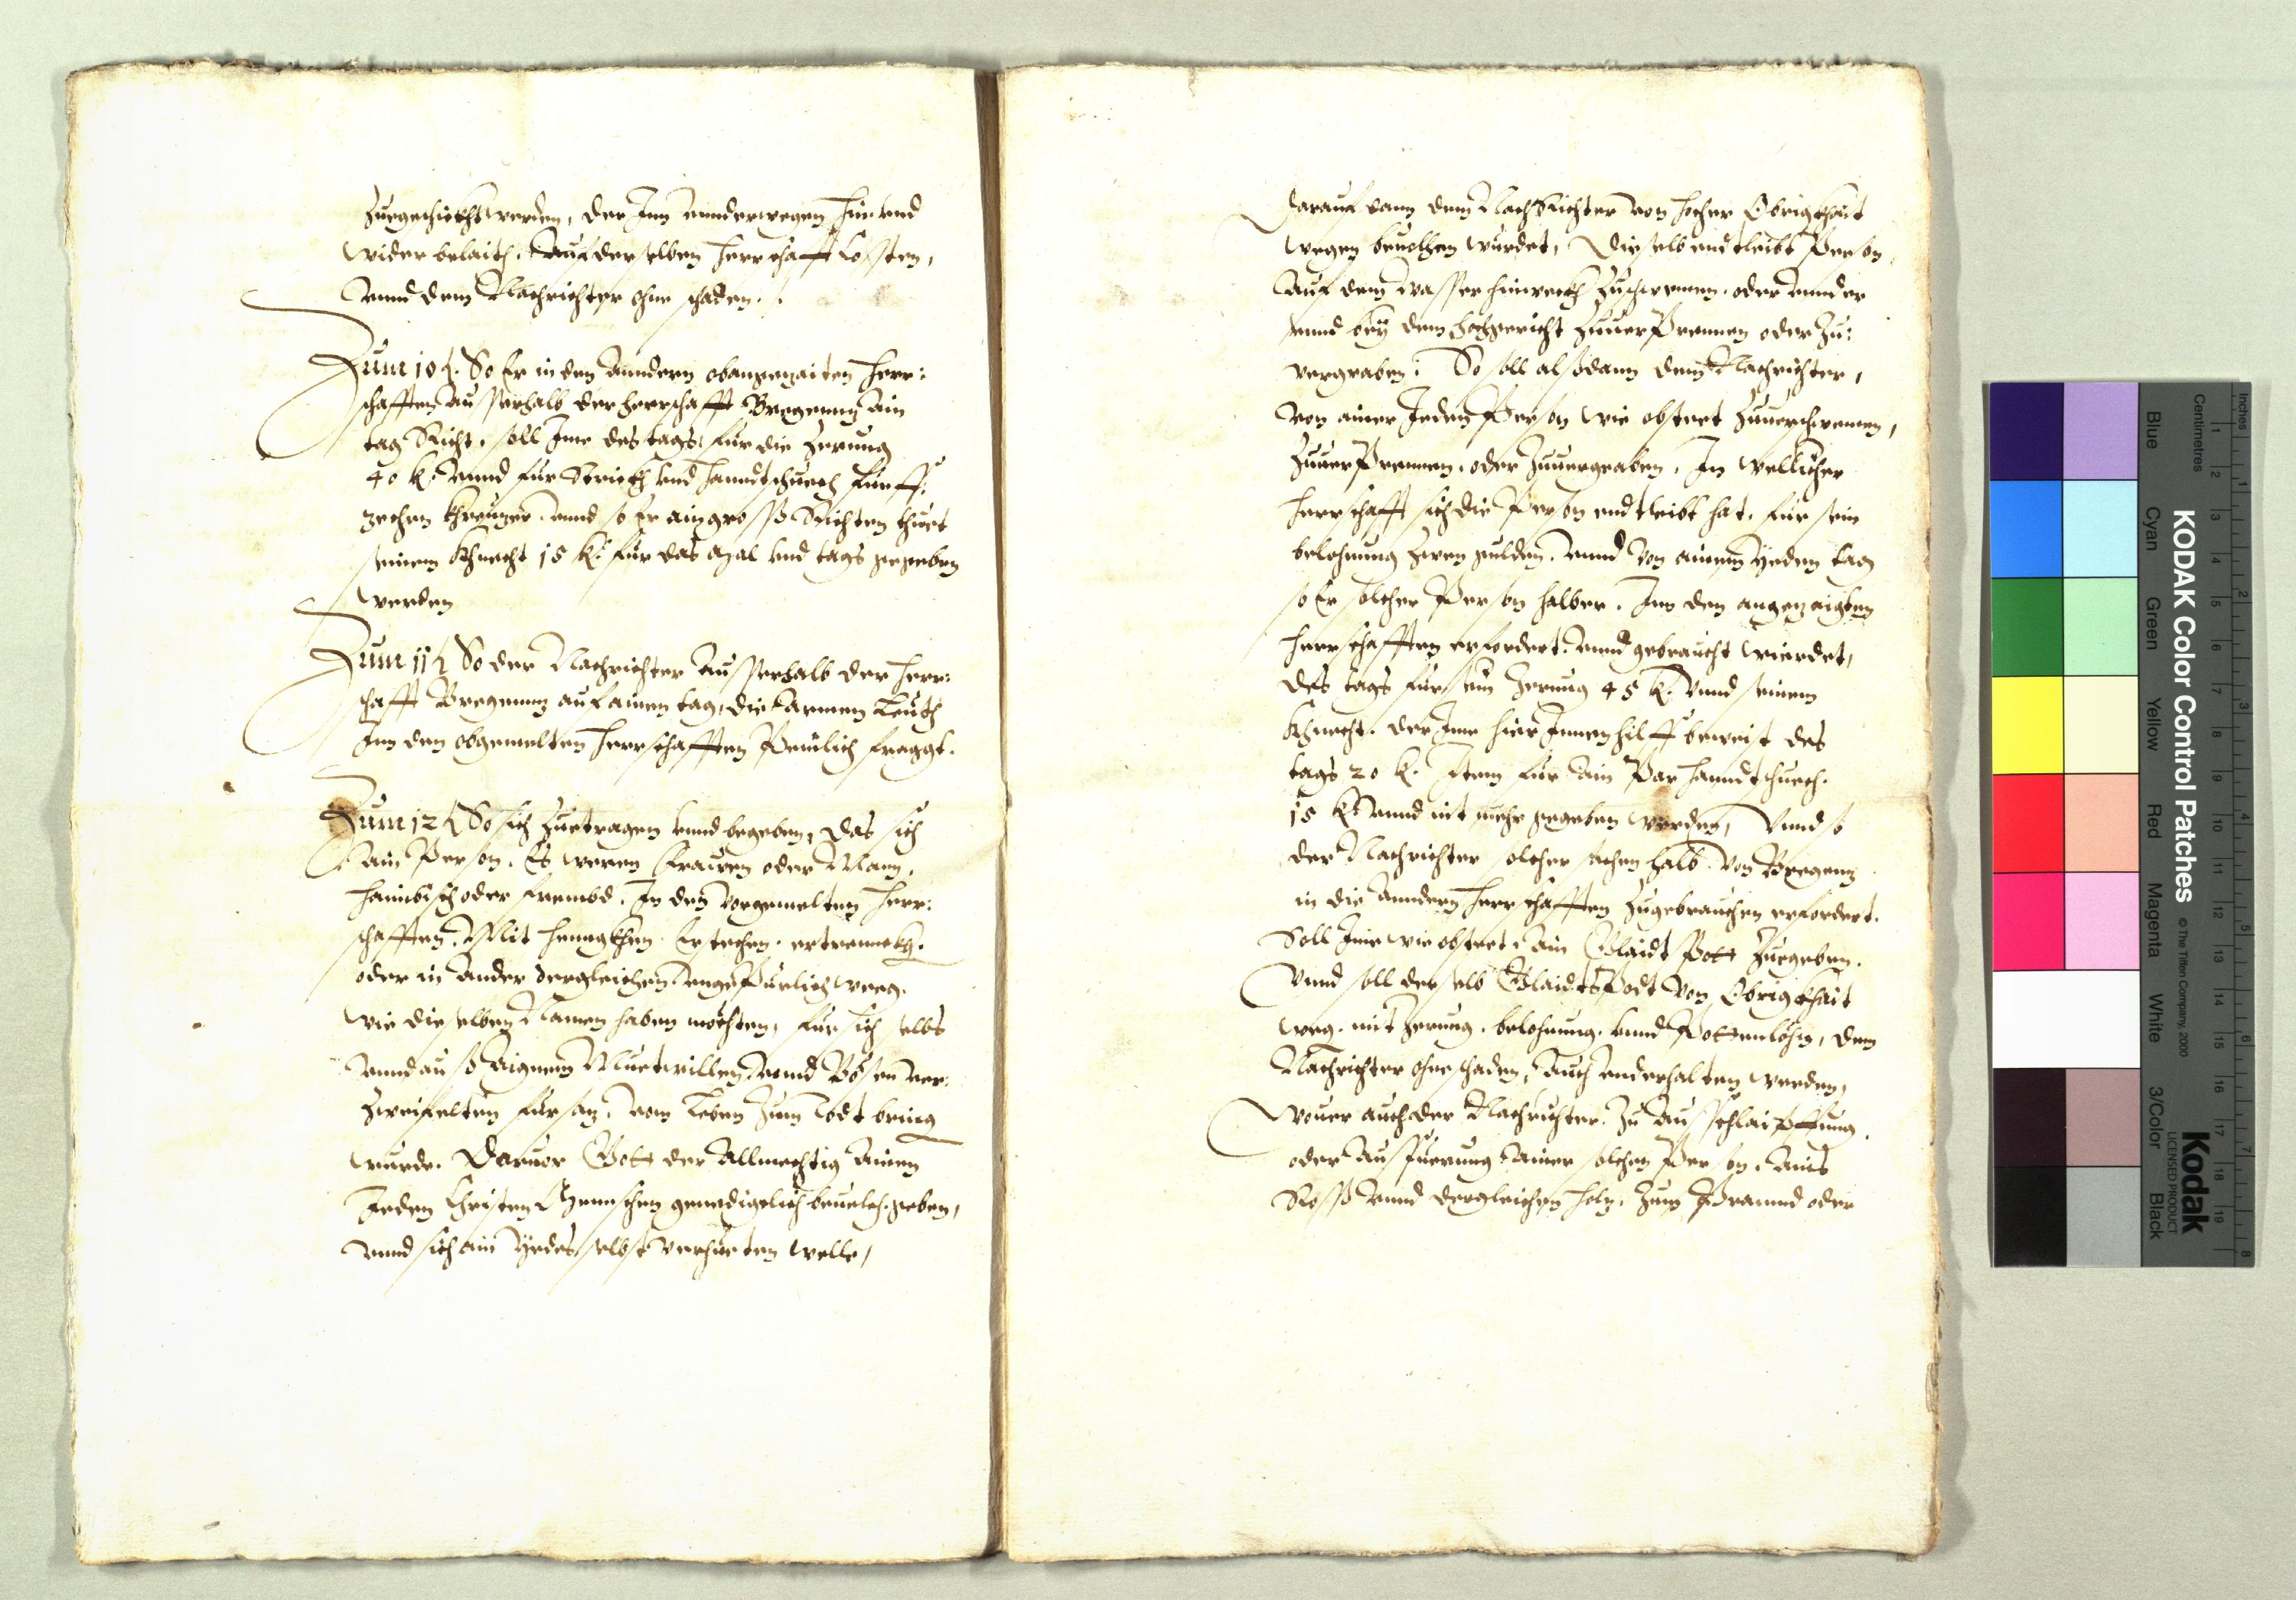 Zuegeschickht werden, der Inn vnnderwegen hin vnd
wider belait. Auf derselben Herrschafft Cossten,
vnnd dem Nachrichter ohne schaden.
Zum 10. So Er in den Anndern obangezaiten Herr:
schafften ausserhalb der herrschafft Bregenng Ain
tag Richt. soll Ime des tags für die Zerung
40 k. vnnd für Strickh vnd Hanndtschuech Fünff:
zechen khreuzer. vnnd so Er ain gross Richten thuet
seinem Khnecht 15 k. für das Mal vnd tags gegeben
werden
Zum 11 So der Nachrichter Ausserhalb der Herr:
schafft Bregenng auf ainen tag, die Armen Leuth
Inn den obgemelten Herrschafften Peinlich fraggt.
Zum 12 So sich Zuetragen vnnd begeben, das sich
ain Person. Es weren Frawen oder Mann,
haimbisch oder frembd. In den vorgemelten Herr:
schafften. Mit Henngkhen. Erstechen. ertrennckh.
oder in Ander dergleichen vngepürlich weeg.
wie dieselben Namen haben möchten, für sich selbs
vnnd auß Aignem Muetwillen, vnnd Bösen ver:
zweifelten fürsaz. vom Leben Zum Todt bring
wurde. Daruor Gott der Allmechtig Ainen
Jeden Christen Mennschen genedigelich beuelch geben,
vnnd sich ain Yedes selbst verhüeten welle,
Darauf dann dem NachRichter von hocher Obrigkhait
wegen beuolhen wurdet, Dieselb endtleibt Person
Auf dem Wasser hinweckh Zuschwemen. oder vnnder
vnnd bey dem Hochgericht Zuuerprennen oder Zu:
vergraben. So soll alßdann dem Nachrichter,
von ainer Jeden Person wie obsteet Zuuerschwemen,
Zuuerprennen. oder Zuuergraben. In wellicher
Herrschafft sich die Person endtleibt hat. für sein
belohnung Zwen gulden. vnnd von ainem Yeden tag
so Er solcher Person halber. Inn den angezaigten
Herrschafften erfordert. vnnd gebraucht wierdet,
des tags für sein Zerung 45 k. Vnnd seinem
Khnecht. der Ime hier Innen hilff beweist des
tags 20 k. Item für Ain Par Hanndtschuech.
15 k. vnnd nit mehr gegeben werden, Vnnd so
der Nachrichter solcher sachen halb von Bregenng
in die Anndern Herrschafften Zugebrauchen erfordert.
Soll Ime wie obsteet. Ain Glaidt Pott Zuegeben.
Vnnd soll derselb Glaidts Pott von Obrigkhait
weg. mit Zerung. belohnung. vnnd Pottenlohn, dem
Nachrichter ohne schaden, Auch vnderhalten werden,
Wouer auch der Nachrichter. Zu Ausschlaipffung.
oder Ausfüerung Ainer solchen Person. Ains
Ross vnnd dergleichen Holz. Zum Prannd oder